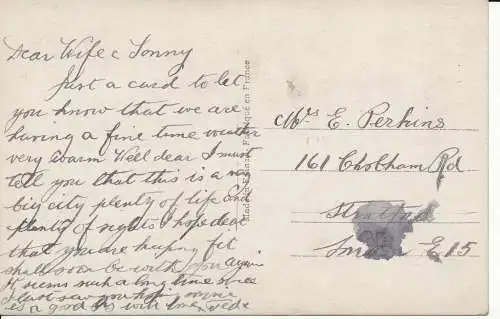 Dear Wife & Sonny
Just a card to let
you know that we are
having a fine time weather
very warm Well dear I must
tell you that this is a
big city plenty of life and
plenty of sights I hope dear
that you are keeping fit
shall soon be with you again
It seems such a long time since
I last saw you hope
is a good with
Made in France Fabriqué en France
Mrs E. Perkins
161 Chobham Rd
Stratford
E15